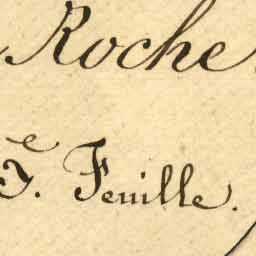 Roche
F. Feuille.